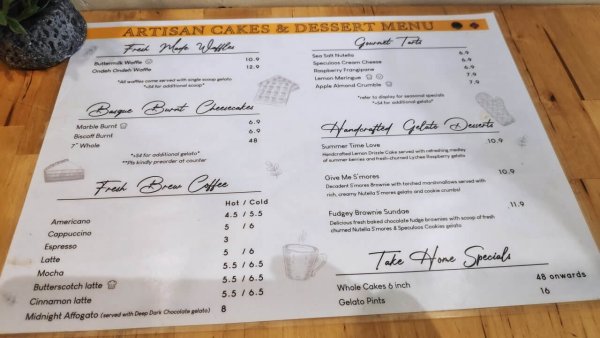 ARTISAN CAKES & DESSERT MENU
Fresh Made Waffles
Buttermilk Waffle 10.9
Ondeh Ondeh Waffle 12.9
*All waffles come served with single scoop gelato
*+$4 for additional scoop*
Basque Burnt Cheesecakes
Marble Burnt 6.9
Biscoff Burnt 6.9
7" Whole 48
*+$4 for additional gelato*
**Pls kindly preorder at counter
Fresh Brew Coffee
Hot / Cold
Americano 4.5 / 5.5
Cappuccino 5 / 6
Espresso 3
Latte 5 / 6
Mocha 5.5 / 6.5
Butterscotch latte 5.5 / 6.5
Cinnamon latte 5.5 / 6.5
Midnight Affogato (served with Deep Dark Chocolate gelato) 8
Gourmet Tarts
Sea Salt Nutella 6.9
Speculoos Cream Cheese 6.9
Raspberry Frangipane 6.9
Lemon Meringue 7.9
Apple Almond Crumble 7.9
*refer to display for seasonal specials
*+$4 for additional gelato*
Handcrafted Gelato Desserts
Summer Time Love 10.9
Handcrafted Lemon Drizzle Cake served with refreshing medley
of summer berries and fresh-churned Lychee Raspberry gelato
Give Me S'mores 10.9
Decadent S'mores Brownie with torched marshmallows served with
rich, creamy Nutella S'mores gelato and cookie crumbs!
Fudgey Brownie Sundae 11.9
Delicious fresh baked chocolate fudge brownies with scoop of fresh
churned Nutella S'mores & Speculoos Cookies gelato
Take Home Specials
Whole Cakes 6 inch 48 onwards
Gelato Pints 16